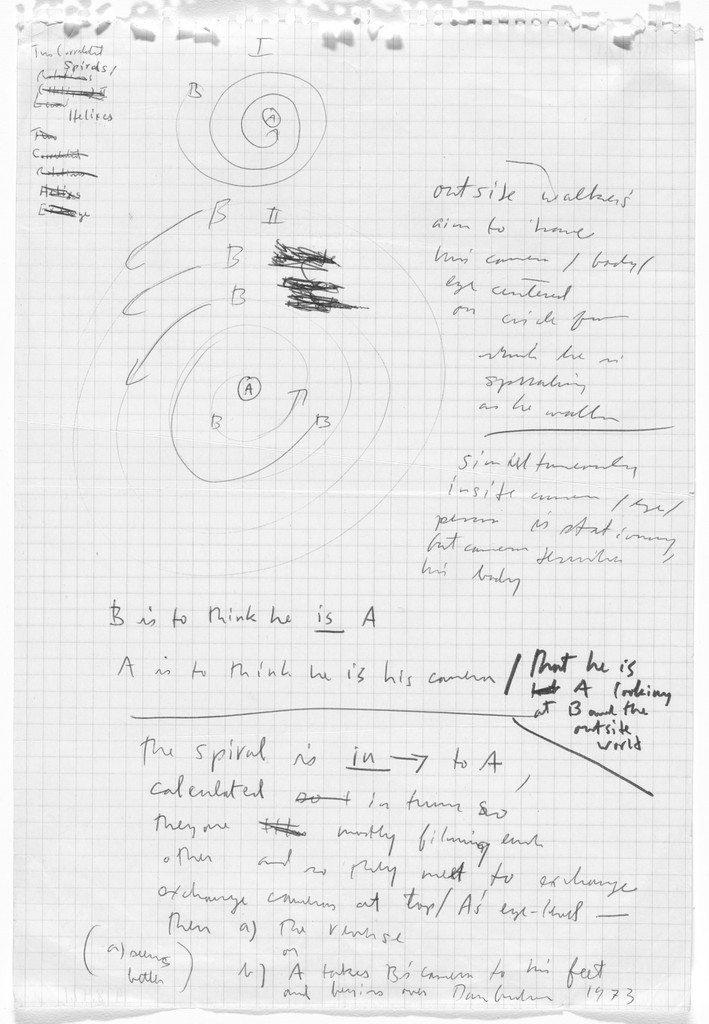 Two Correlated
Spirals/
Rotations
Helixes
Two
Correlated
Rotations
Helixes
I
B
A
B II
B
B
A
B B
outside walker's
aim to have
his camera / body /
eye centered
on circle from
which he is
spiraling
as he walks
simultaneously
inside camera / eye /
person is stationary
but camera
his body
B is to think he is A
A is to think he is his camera / that he is
A looking
at B and the
outside
world
the spiral is in → to A,
calculated so in turn so
they are mostly filming each
other and so they meet to exchange
exchange cameras at top / A's eye-level —
then a) the reverse
or
(a) seems
better)
b) A takes B's camera to his feet
and begins over Dan Graham 1973